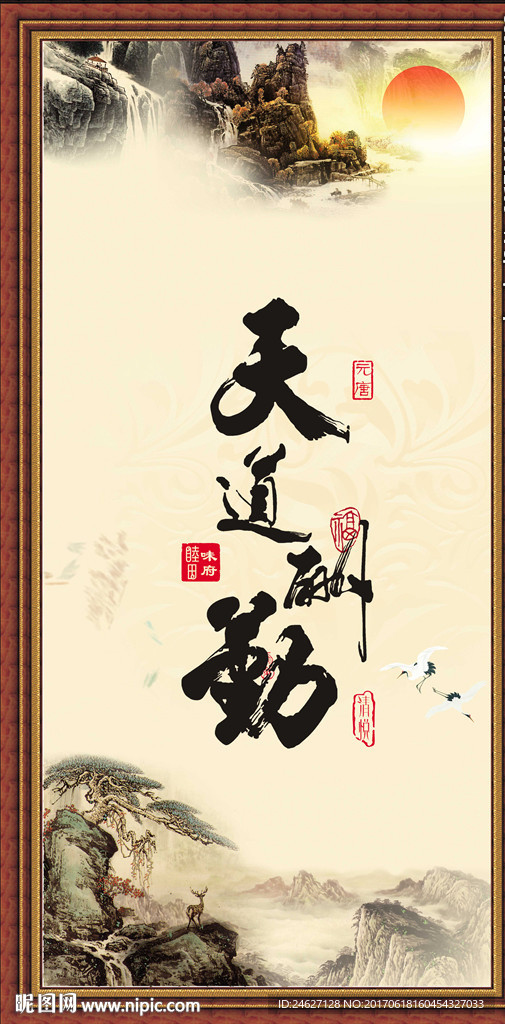 天道酬勤
元唐
福
味府
睦田
清悦
昵图网 www.nipic.com
ID:24627128 NO:20170618160454327033